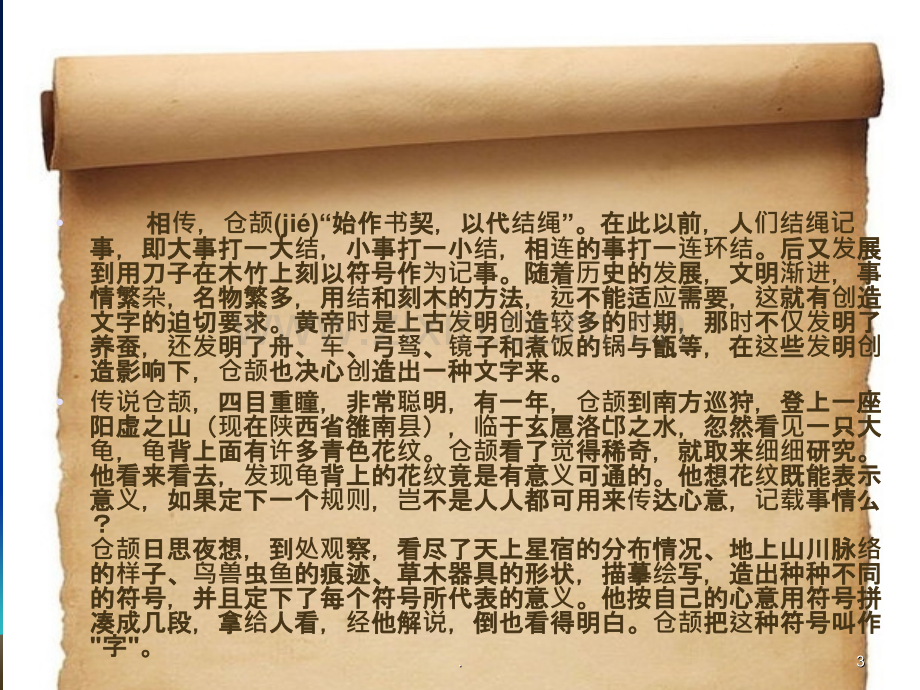 相传，仓颉(jié)“始作书契，以代结绳”。在此以前，人们结绳记
事，即大事打一大结，小事打一小结，相连的事打一连环结。后又发展
到用刀子在木竹上刻以符号作为记事。随着历史的发展，文明渐进，事
情繁杂，名物繁多，用结和刻木的方法，远不能适应需要，这就有创造
文字的迫切要求。黄帝时是上古发明创造较多的时期，那时不仅发明了
养蚕，还发明了舟、车、弓弩、镜子和煮饭的锅与甑等，在这些发明创
造影响下，仓颉也决心创造出一种文字来。
传说仓颉，四目重瞳，非常聪明，有一年，仓颉到南方巡狩，登上一座
阳虚之山（现在陕西省雒南县），临于玄扈洛邙之水，忽然看见一只大
龟，龟背上面有许多青色花纹。仓颉看了觉得稀奇，就取来细细研究。
他看来看去，发现龟背上的花纹竟是有意义可通的。他想花纹既能表示
意义，如果定下一个规则，岂不是人人都可用来传达心意，记载事情么
？
仓颉日思夜想，到处观察，看尽了天上星宿的分布情况、地上山川脉络
的样子、鸟兽虫鱼的痕迹、草木器具的形状，描摹绘写，造出种种不同
的符号，并且定下了每个符号所代表的意义。他按自己的心意用符号拼
凑成几段，拿给人看，经他解说，倒也看得明白。仓颉把这种符号叫作
"字"。
3